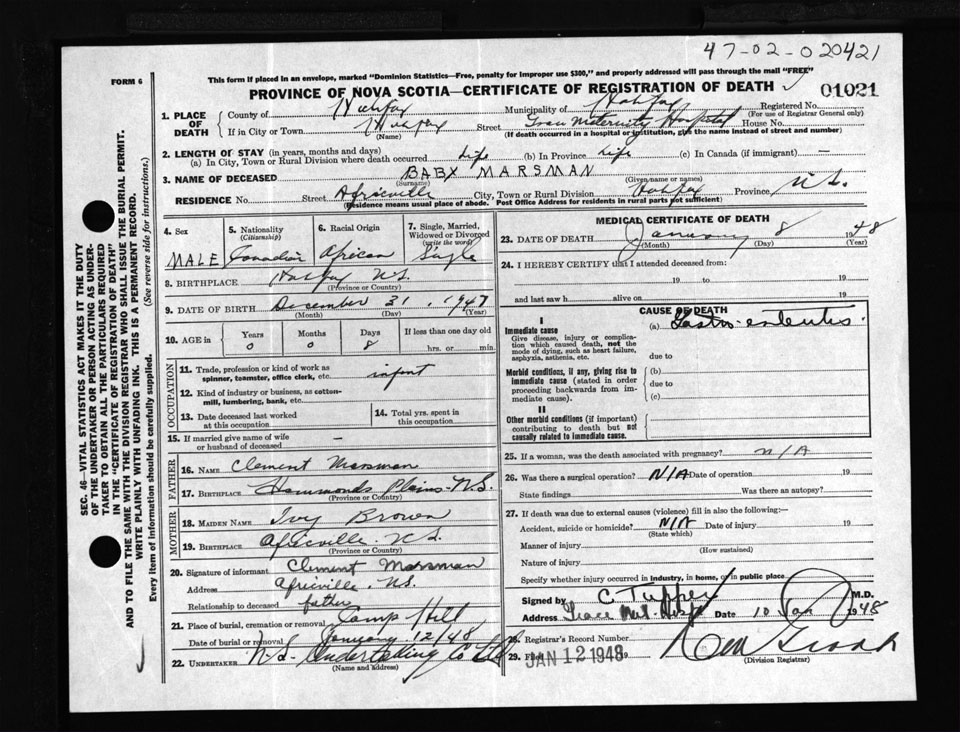 47-02-020421
FORM 6
This form if placed in an envelope, marked "Dominion Statistics—Free, penalty for improper use $300," and properly addressed will pass through the mail "FREE"
PROVINCE OF NOVA SCOTIA—CERTIFICATE OF REGISTRATION OF DEATH
01021
1. PLACE OF DEATH
County of Halifax Municipality of Halifax Registered No.
(For use of Registrar General only)
If in City or Town Halifax Street Grace Maternity Hospital House No.
(Name) (If death occurred in a hospital or institution, give the name instead of street and number)
2. LENGTH OF STAY (in years, months and days)
(a) In City, Town or Rural Division where death occurred Life (b) In Province Life (c) In Canada (if immigrant) —
3. NAME OF DECEASED BABY MARSMAN
(Surname) (Given name or names)
RESIDENCE No. Street Africville City, Town or Rural Division Halifax Province N.S.
(Residence means usual place of abode. Post Office Address for residents in rural parts not sufficient)
4. Sex
MALE
5. Nationality
(Citizenship)
Canadian
6. Racial Origin
African
7. Single, Married, Widowed or Divorced
(write the word)
Single
8. BIRTHPLACE Halifax N.S.
(Province or Country)
9. DATE OF BIRTH December 31, 1947
(Month) (Day) (Year)
10. AGE in
Years Months Days If less than one day old
0 0 8 hrs. or min.
OCCUPATION
11. Trade, profession or kind of work as
spinner, teamster, office clerk, etc. infant
12. Kind of industry or business, as cotton-
mill, lumbering, bank, etc.
13. Date deceased last worked
at this occupation
14. Total yrs. spent in
this occupation
15. If married give name of wife
or husband of deceased —
FATHER
16. NAME Clement Marsman
17. BIRTHPLACE Hammonds Plains N.S.
(Province or Country)
MOTHER
18. MAIDEN NAME Ivy Brown
19. BIRTHPLACE Africville N.S.
(Province or Country)
20. Signature of informant Clement Marsman
Address Africville N.S.
Relationship to deceased father
21. Place of burial, cremation or removal Camp Hill
Date of burial or removal January 12/48
22. UNDERTAKER N.S. Undertaking Co Ltd
(Name and address)
MEDICAL CERTIFICATE OF DEATH
23. DATE OF DEATH January 8 1948
(Month) (Day) (Year)
24. I HEREBY CERTIFY that I attended deceased from:
19 to 19
and last saw h alive on 19
CAUSE OF DEATH
I
Immediate cause
Give disease, injury or complica-
tion which caused death, not the
mode of dying, such as heart failure,
asphyxia, asthenia, etc.
(a) Gastro-enteritis
due to
Morbid conditions, if any, giving rise to
immediate cause (stated in order
proceeding backwards from im-
mediate cause).
(b)
due to
(c)
II
Other morbid conditions (if important)
contributing to death but not
causally related to immediate cause.
25. If a woman, was the death associated with pregnancy? N/A
26. Was there a surgical operation? N/A Date of operation 19
State findings Was there an autopsy?
27. If death was due to external causes (violence) fill in also the following:—
Accident, suicide or homicide? N/A Date of injury 19
(State which)
Manner of injury
(How sustained)
Nature of injury
Specify whether injury occurred in industry, in home, or in public place
Signed by C. Tupper M.D.
Address Grace Mat. Hosp Date 10 Jan 1948
28. Registrar's Record Number
29. Filed JAN 12 1948 19
(Division Registrar)
SEC. 46—VITAL STATISTICS ACT MAKES IT THE DUTY
OF THE UNDERTAKER OR PERSON ACTING AS UNDER-
TAKER TO OBTAIN ALL THE PARTICULARS REQUIRED
IN THE "CERTIFICATE OF REGISTRATION OF DEATH"
AND TO FILE THE SAME WITH THE DIVISION REGISTRAR WHO SHALL ISSUE THE BURIAL PERMIT.
WRITE PLAINLY WITH UNFADING INK. THIS IS A PERMANENT RECORD.
Every item of information should be carefully supplied. (See reverse side for instructions.)